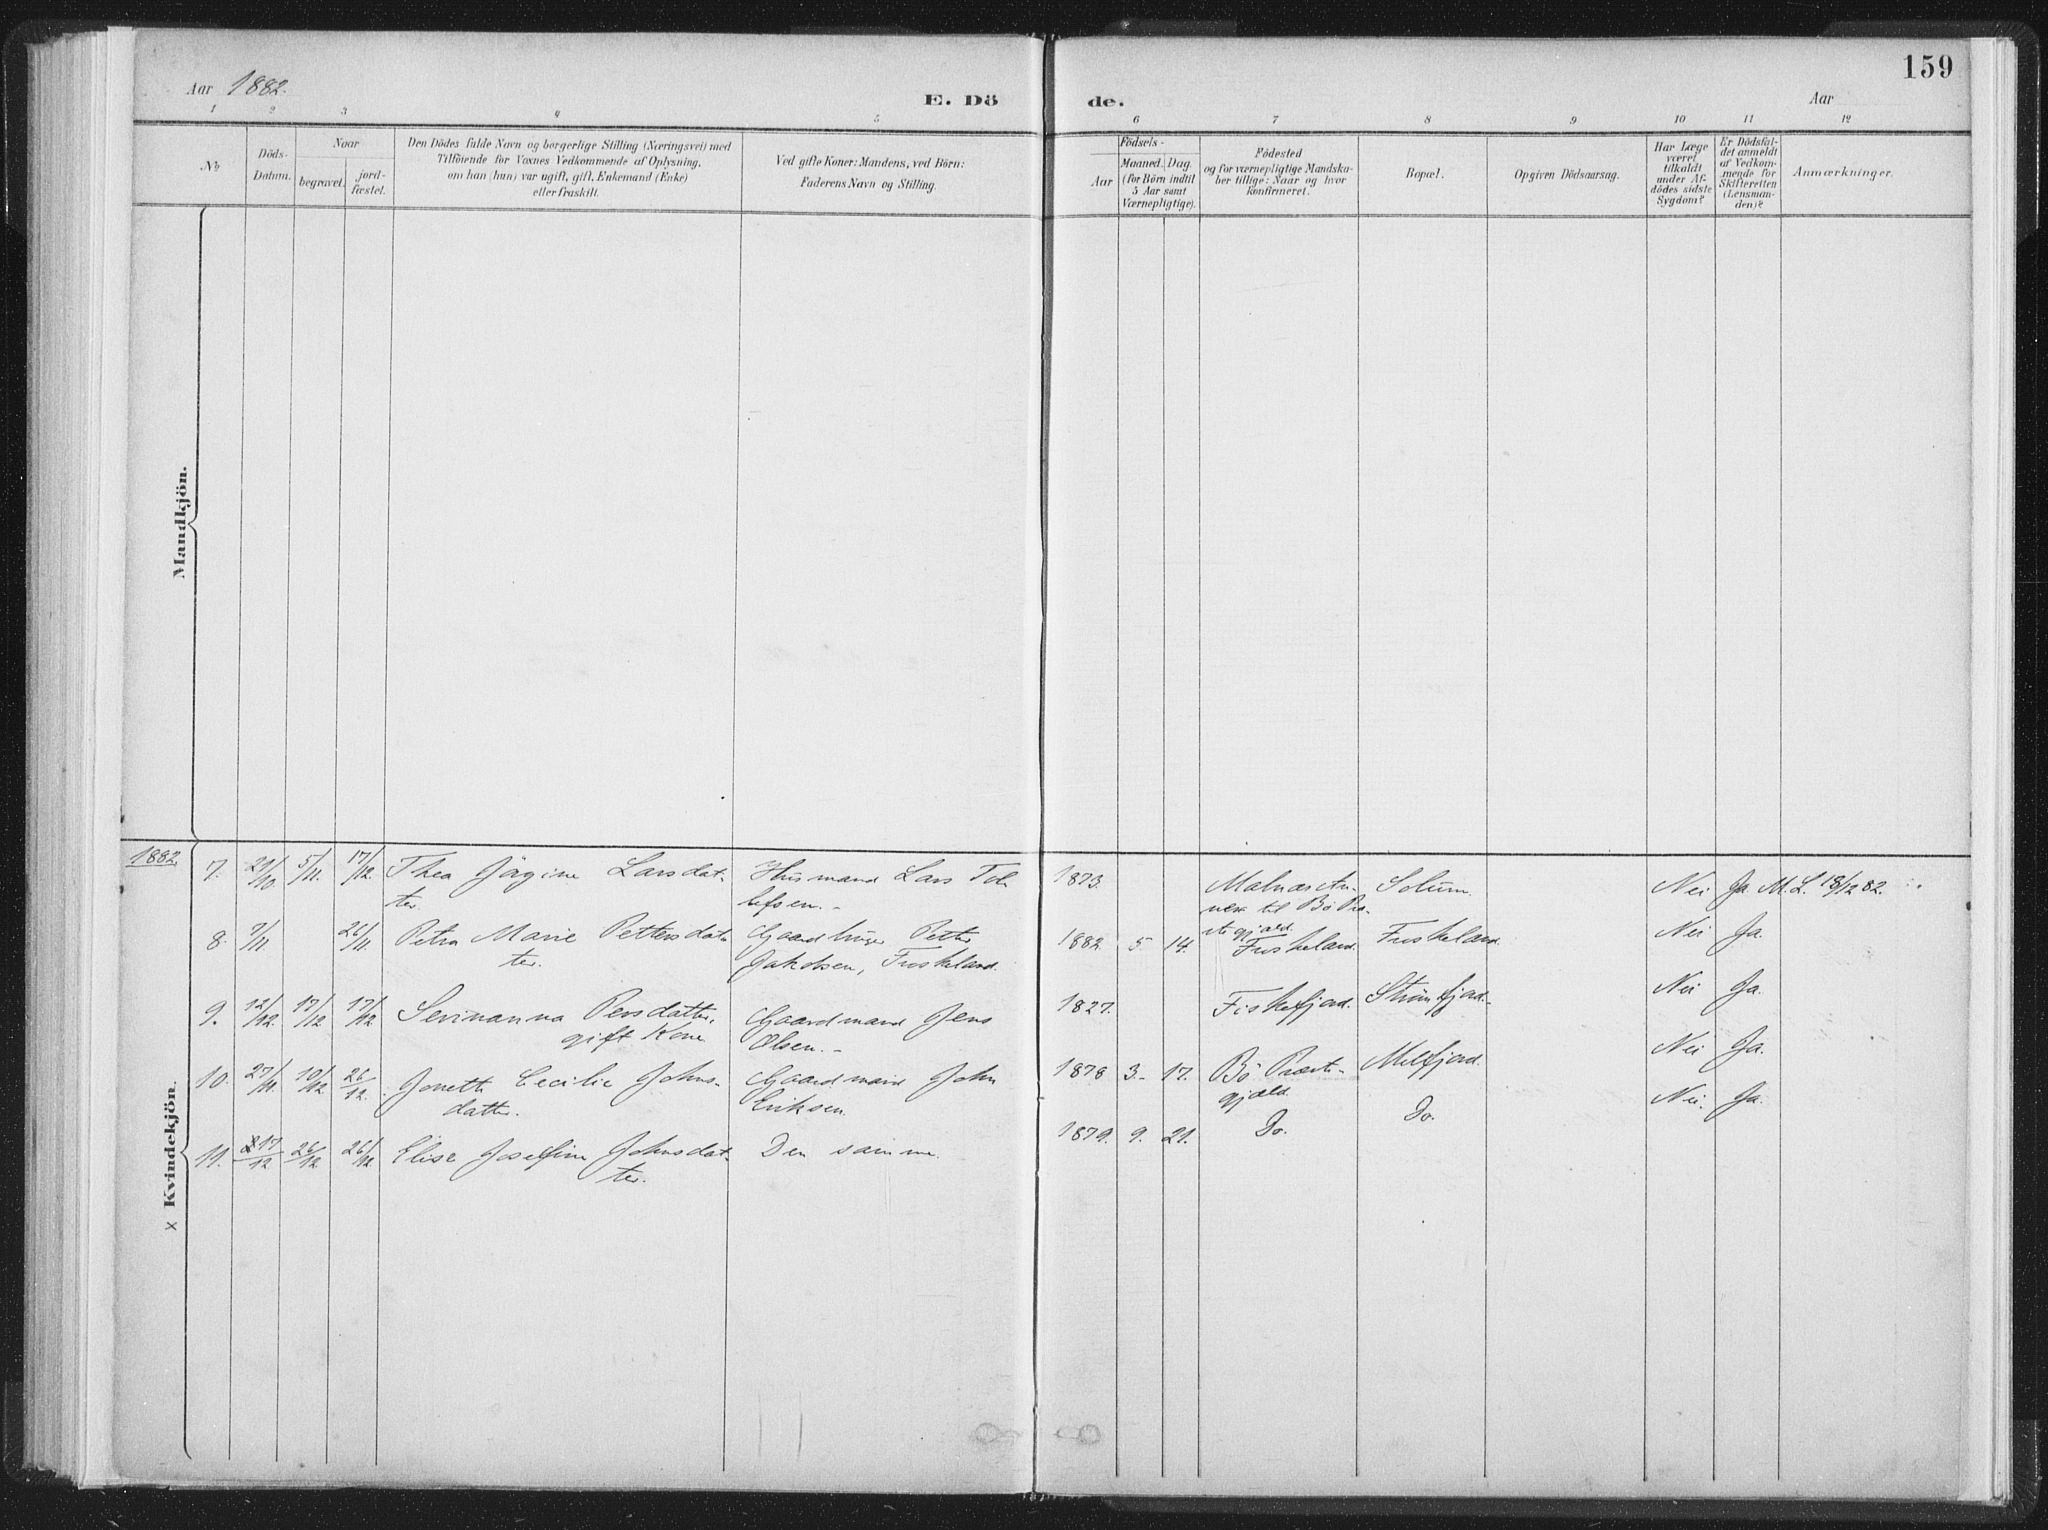 159
Aar 1882.
E. Dö de.
Aar
1 2 3 4 5 6 7 8 9 10 11 12
No
Döds-
Datum.
Naar
begravet.
jord-
fæstet.
Den Dödes fulde Navn og borgerlige Stilling (Næringsvei) med
Tilföiende for Voxnes Vedkommende af Oplysning,
om han (hun) var ugift, gift, Enkemand (Enke)
eller fraskilt.
Ved gifte Koner: Mandens, ved Börn:
Faderens Navn og Stilling.
Födsels-
Aar
Maaned. Dag.
(for Börn indtil
5 Aar samt
Værnepligtige).
Födested
og for værnepligtige Mandska-
ber tillige: Naar og hvor
konfirmeret.
Bopæl.
Opgiven Dödsaarsag.
Har Læge
været
tilkaldt
under Af-
dödes sidste
Sygdom?
Er Dödsfal-
det anmeldt
af Vedkom-
mende for
Skifteretten
(Lensman-
den)?
Anmærkninger.
Mandkjön.
1882.
7. 5/11. 17/12. Thea Jörgine Larsdat-
ter.
Husmand Lars
1873. Malnæs An-
nex til Bö Præ-
stegjæld
Solum Nei Ja. M. L. 18/12 82.
8. 7/11. 26/11. Petra Marie Pettersdat-
ter.
Petter
Jakobsen, Fruskeland.
1882. 5. 14. Fruskeland. Fruskeland. Nei Ja.
9. 12/12. 17/12 17/12. Persdatter,
gift Kone
Gaardmand Jens
Olsen.-
1827. Fiskefjord. Nei Ja.
10. 27/11. 10/12. 26/12. Cecilie Johns-
datter.
Gaardmand John
Eriksen.
1878 3. 17. Bö Præste-
gjæld.
Melfjord. Nei Ja.
11. 17/12 26/12 26/12. Elise Josefine Johnsdat-
ter.
Den samme.
1879. 9. 21. Do. Do. Nei. Ja.
x Kvindekjön.